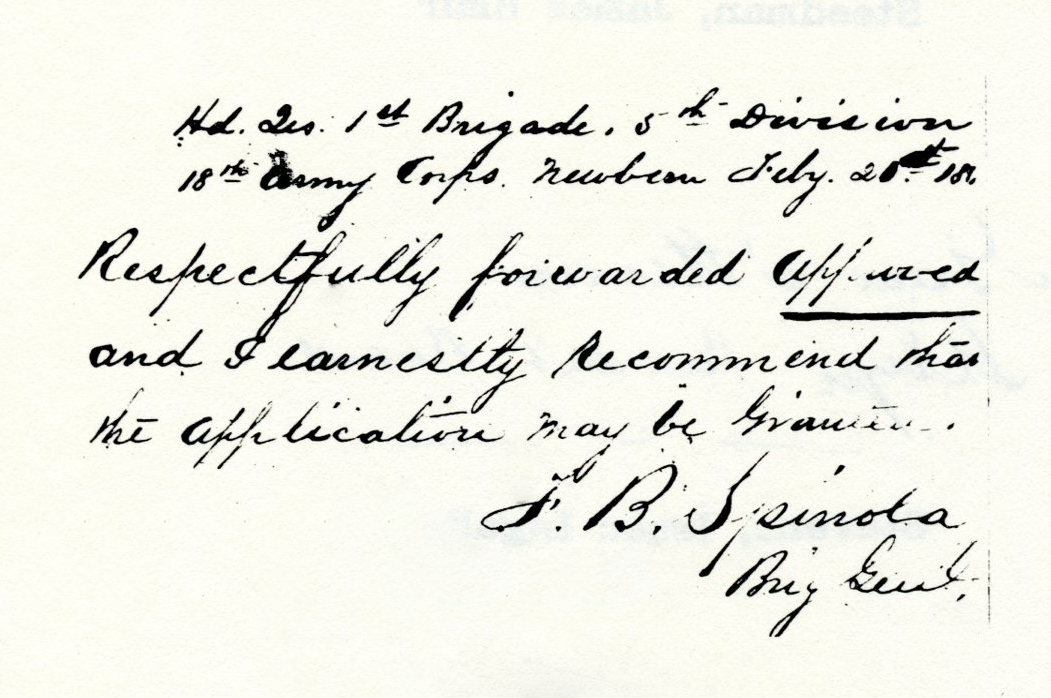 Hd. Qrs. 1st Brigade, 5th Division
18th Army Corps. Newbern Feby. 20th
Respectfully forwarded approved
and I earnestly recommend that
the application may be Granted.
F. B. Spinola
Brig Genl.